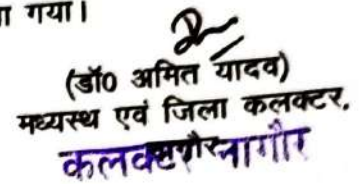 गया।
(डॉ0 अमित यादव)
मध्यस्थ एवं जिला कलक्टर,
कलक्टर नागौर